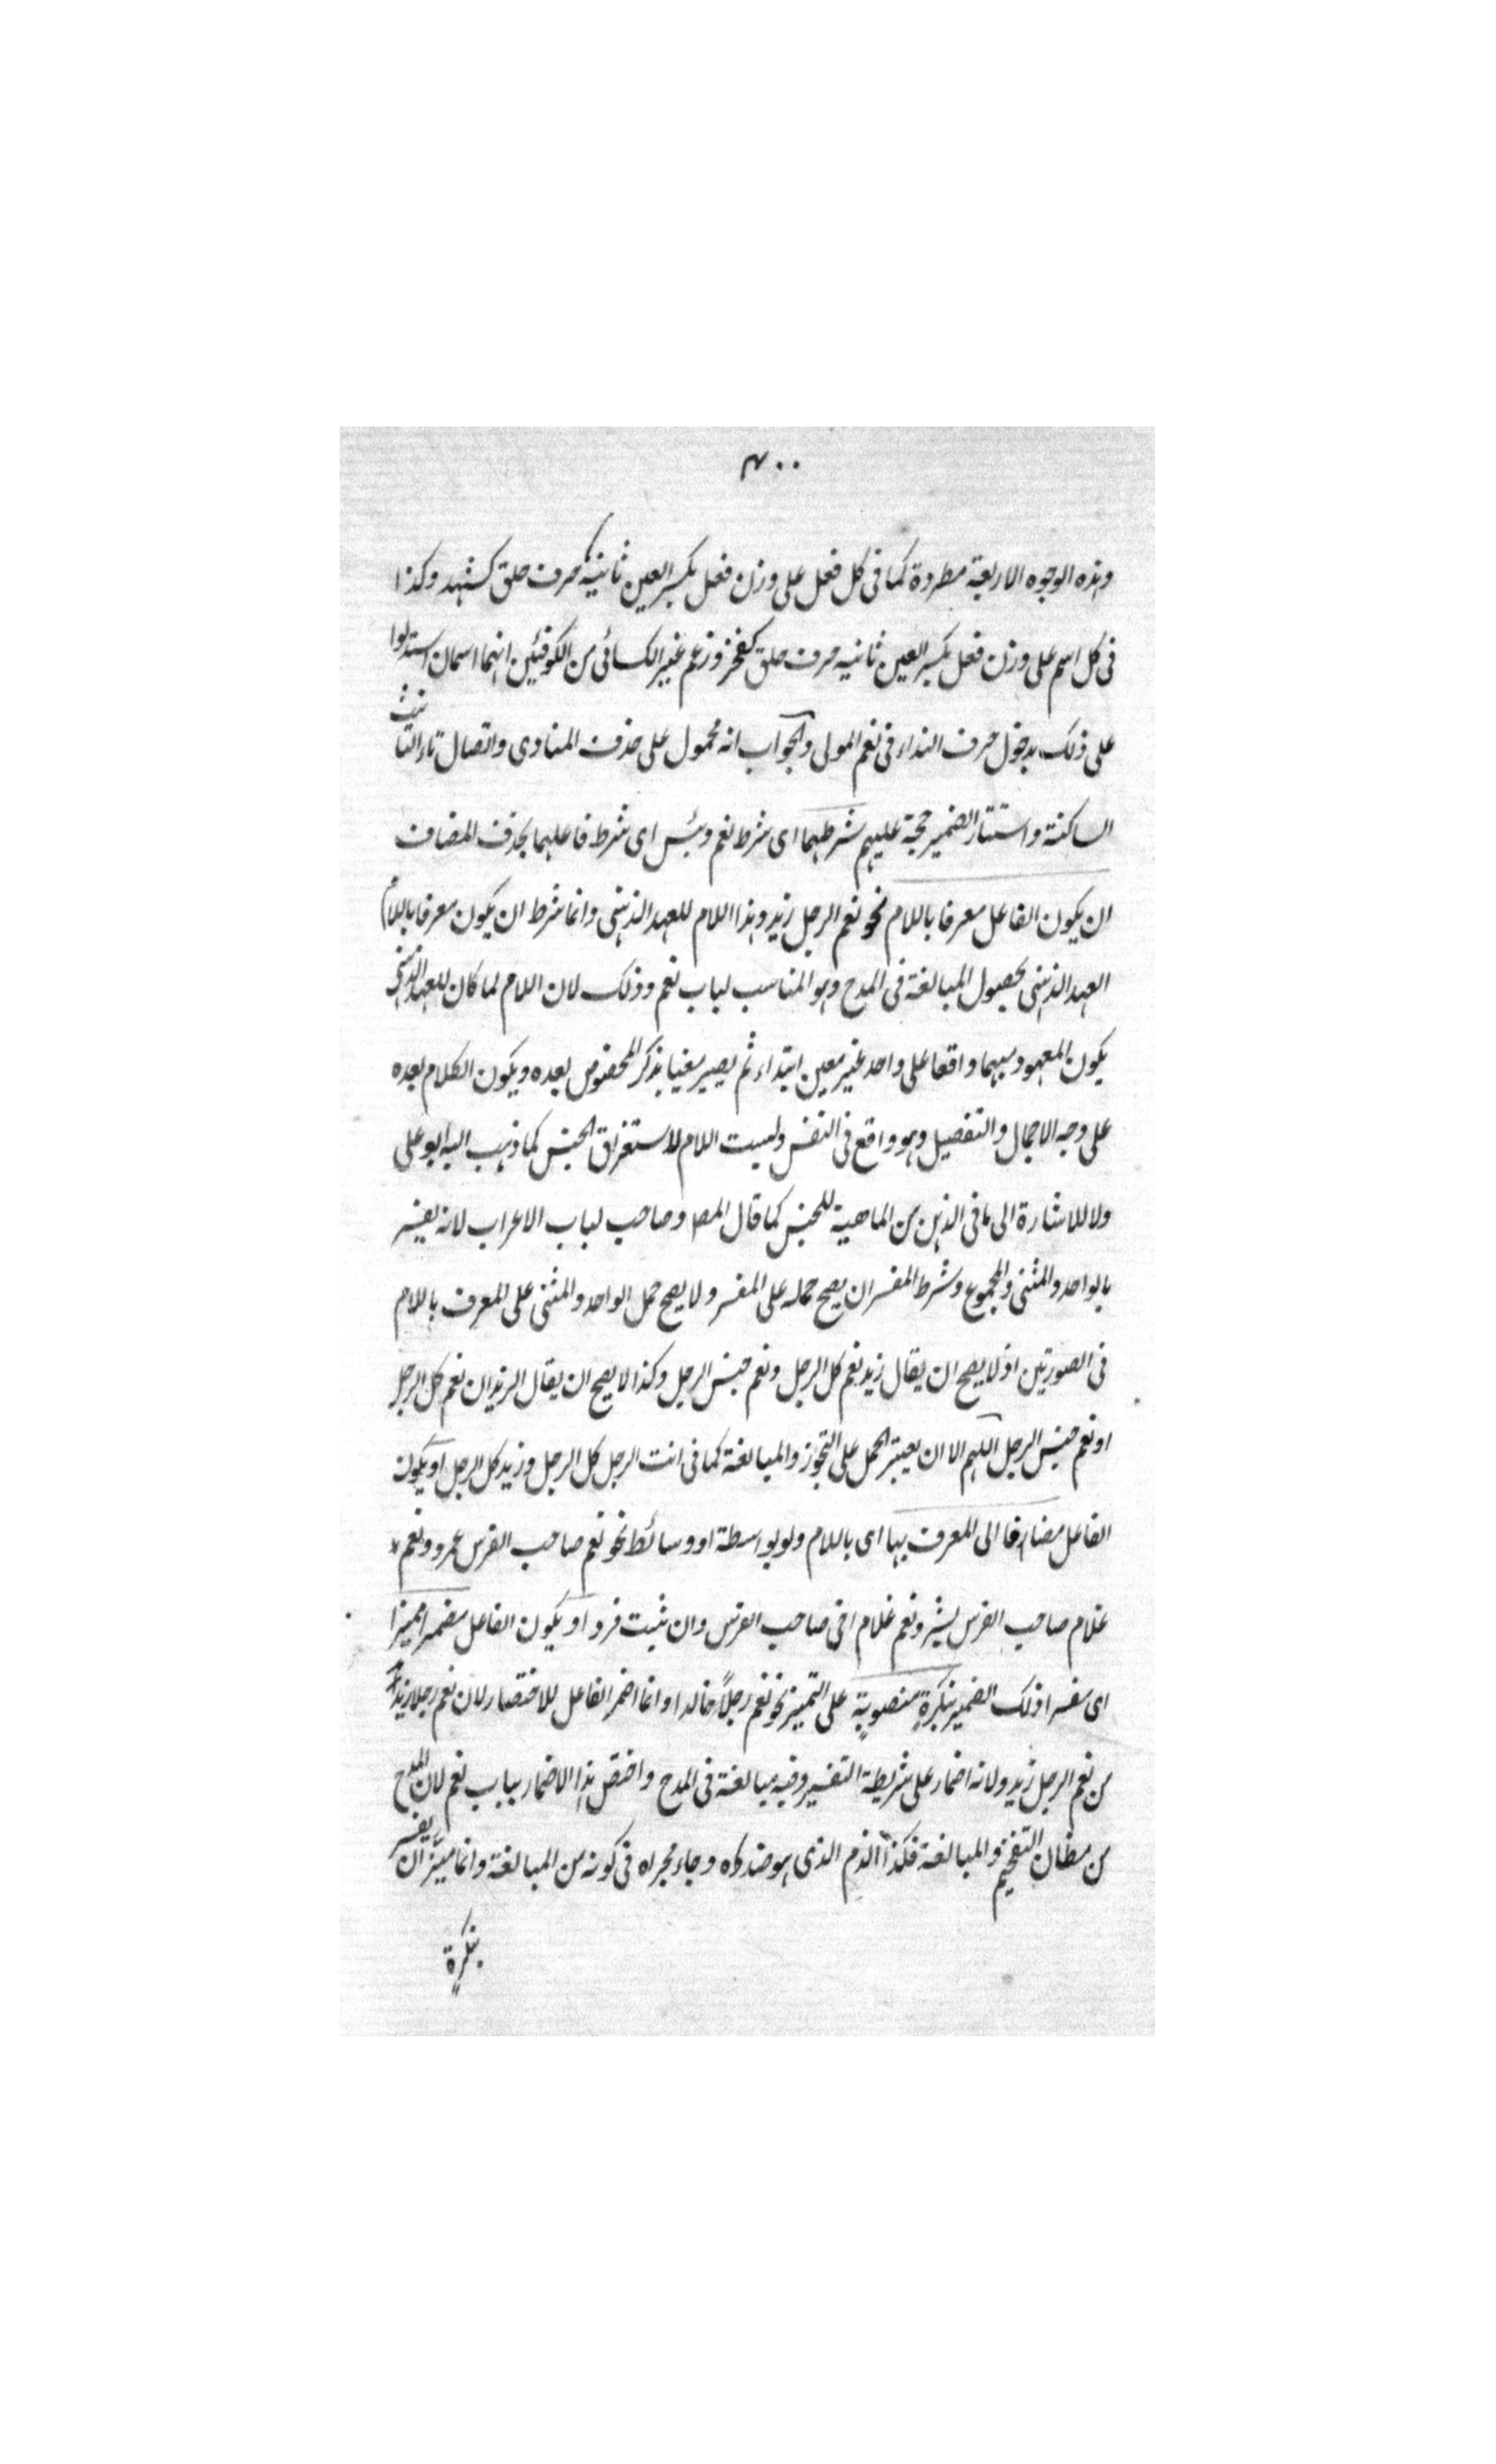 ٣٠٠
وهذه الوجوه الاربعة مطردة كما فى كل فعل على وزن فعل بكسر العين ثانيه حرف حلق كشهد وكذا
فى كل اسم على وزن فعل بكسر العين ثانيه حرف حلق كفخز وزعم غير الكسائى من الكوفئين انهما اسمان استدلوا
على ذلك بدخول حرف النداء فى نعم المولى والجواب انه محمول على حذف المنادى واتصال تاء التانيث
الساكنة واستتار الضمير حجة عليهم شرطهما اى شرط نعم وبئس اى شرط فاعلهما بحذف المضاف
ان يكون الفاعل معرفا باللام نحو نعم الرجل زيد وهذا اللام للعهد الذهنى وانما شرط ان يكون معرفا باللام
العهد الذهنى لحصول المبالغة فى المدح وهو المناسب لباب نعم وذلك لان اللام لما كان للعهد الذهنى
يكون المعهود مبهما واقعا على واحد غير معين ابتداء ثم يصير معينا بذكر المخصوص بعده ويكون الكلام بعده
على وجه الاجمال والتفصيل وهو واقع فى النفس وليست اللام لاستغراق الجنس كما ذهب اليه ابو على
ولا للاشارة الى ما فى الذهن من الماهية للجنس كما قال المص وصاحب لباب الاعراب لانه يفسر
بالواحد والمثنى والمجموع وشرط المفسر ان يصح حمله على المفسر ولا يصح حمل الواحد والمثنى على المعرف باللام
فى الصورتين اذ لا يصح ان يقال زيد نعم كل الرجل ونعم جنس الرجل وكذا لا يصح ان يقال الزيدان نعم كل الرجل
او نعم جنس الرجل اللهم الا ان يعتبر الحمل على التجوز والمبالغة كما فى انت الرجل كل الرجل وزيد كل الرجل او يكون
الفاعل مضافا الى المعرف بها اى باللام ولو بواسطة او وسائط نحو نعم صاحب الفرس عمرو ونعم
غلام صاحب الفرس بشر ونعم غلام اخى صاحب الفرس وان شئت فزد او يكون الفاعل مضمرا مميزا
اى مفسرا ذلك الضمير بنكرة منصوبة على التمييز نحو نعم رجلاً خالد وانما اضمر الفاعل للاختصار لان نعم رجلا زيد
من نعم الرجل زيد ولانه اضمار على شريطة التفسير وفيه مبالغة فى المدح واختص هذا الاضمار بباب نعم لان المدح
من مظان التفخيم والمبالغة فكذا الذم الذى هو ضده وجاء مجراه فى كونه من المبالغة وانما ان يفسر
بنكرة